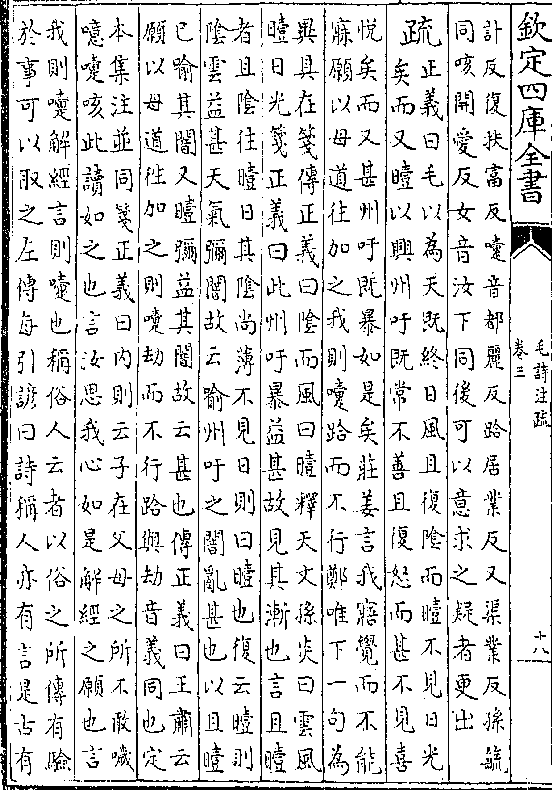 欽定四庫全書
毛詩注疏
卷三
十八
計反復扶富反嚏音都麗反跲居業反又渠業反孫毓
同咳開愛反女音汝下同後可以意求之疑者更出
疏
正義曰毛以為天既終日風且復陰而曀不見日光
矣而又曀以興州吁既常不善且復怒而甚不見喜
悅矣而又甚州吁既暴如是矣莊姜言我寤覺而不能
寐願以母道往加之我則嚏跲而不行鄭唯下一句為
異具在箋傳正義曰陰而風曰曀釋天文孫炎曰雲風
曀日光箋正義曰此州吁暴益甚故見其漸也言且曀
者且陰往曀日其陰尚薄不見日則曰曀也復云曀則
陰雲益甚天氣彌闇故云喻州吁之闇亂甚也以且曀
已喻其闇又曀彌益其闇故云甚也傳正義曰王肅云
願以母道往加之則嚏劫而不行跲與劫音義同也定
本集注並同箋正義曰內則云子在父母之所不敢噦
噫嚏咳此讀如之也言汝思我心如是解經之願也言
我則嚏解經言則嚏也稱俗人云者以俗之所傳有驗
於事可以取之左傳每引諺曰詩稱人亦有言是古有